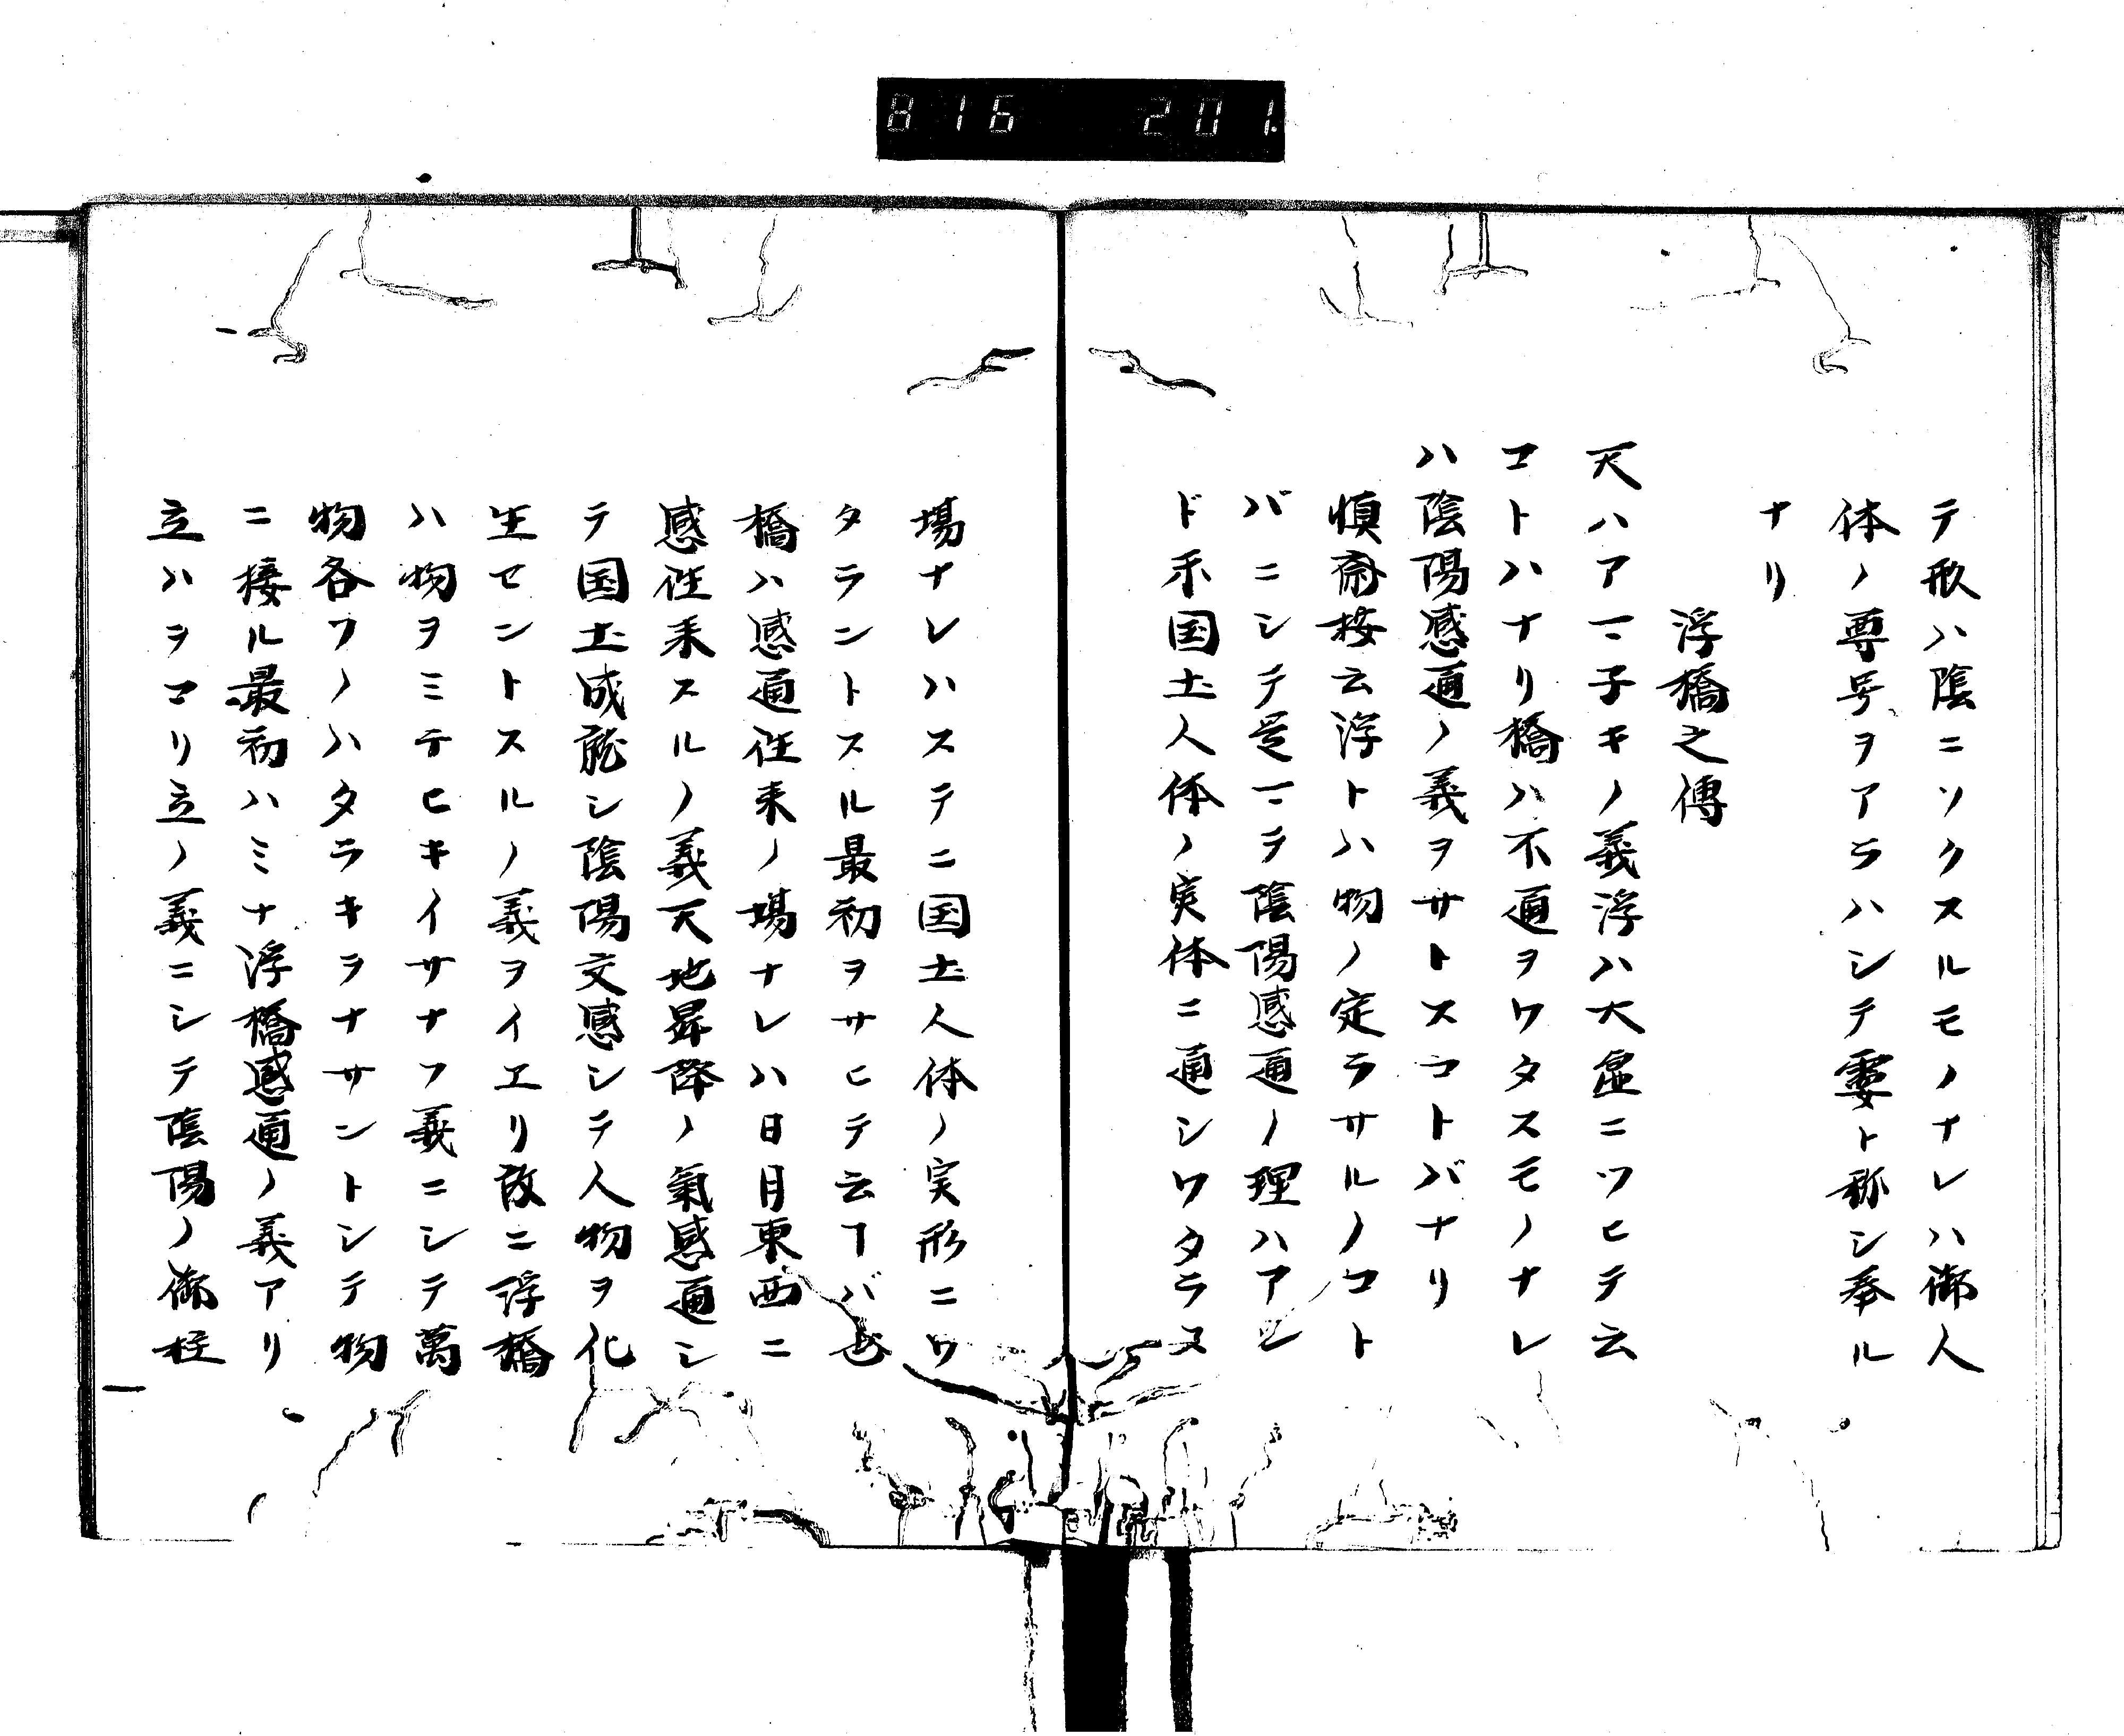 816 201.
テ形ハ陰ニソクスルモノナレハ御人
体ノ尊号ヲアラハシテ霊ト称シ奉ル
ナリ
浮橋之傳
天ハアマ子キノ義浮ハ大虚ニツヒテ云
コトハナリ橋ハ不通ヲワタスモノナレ
ハ陰陽感通ノ義ヲサトスコトバナリ
慎斎按云浮トハ物ノ定ラサルノコト
バニシテ是マテ陰陽感通ノ理ハアレ
ド未国土人体ノ実体ニ通シワタラヌ
場ナレハステニ国土人体ノ実形ニワ
タラントスル最初ヲサヒテ云フバ也
橋ハ感通往来ノ場ナレハ日月東西ニ
感往来スルノ義天地昇降ノ氣感通シ
テ国土成就シ陰陽交感シテ人物ヲ化
生セントスルノ義ヲイエリ故ニ浮橋
ハ物ヲミテヒキイサナフ義ニシテ萬
物各フノハタラキヲナサントシテ物
ニ接ル最初ハミナ浮橋感通ノ義アリ
立ハヲコリ立ノ義ニシテ陰陽ノ御柱